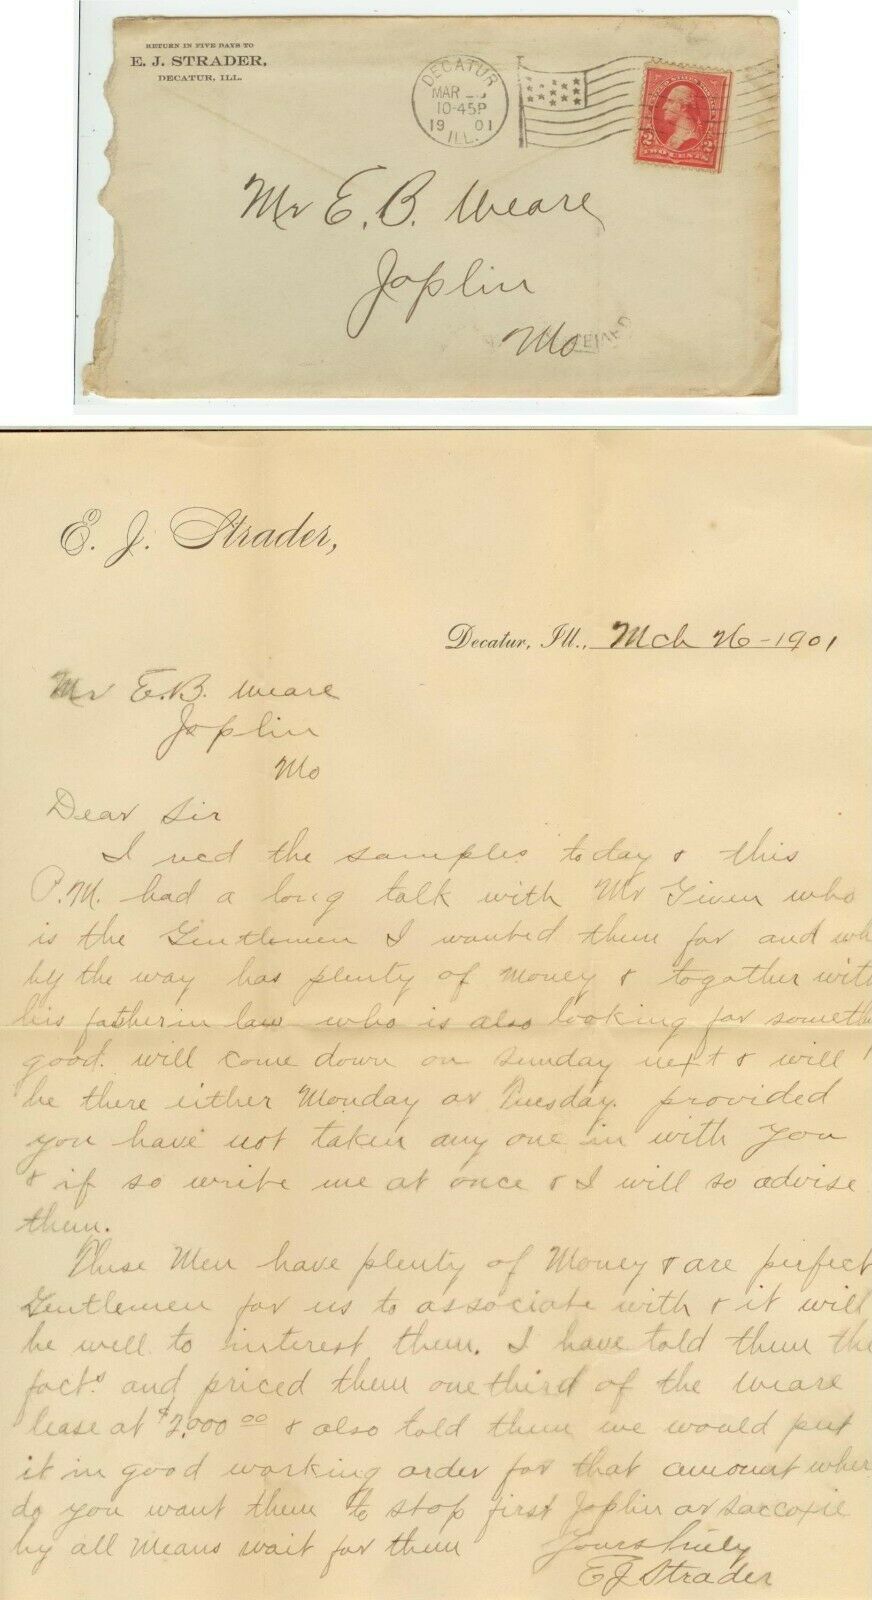 RETURN IN FIVE DAYS TO
E. J. STRADER,
DECATUR, ILL.
DECATUR
MAR
10-45P
19 01
ILL.
UNITED STATES POSTAGE
2 2
TWO CENTS
Mr E. B. Weare
Joplin
Mo
E. J. Strader,
Decatur, Ill., Mch 26-1901
Mr E.B. Weare
Joplin
Mo
Dear Sir
I recd the samples today & this
P.M. had a long talk with Mr Given who
is the Gentlemen I wanted them for and wh
by the way has plenty of money & togather with
his father in law who is also looking for someth
good. will come down on sunday next & will
be there either Monday or Tuesday. provided
you have not taken any one in with you
& if so write me at once & I will so advise
them.
These Men have plenty of Money & are perfect
Gentlemen for us to associate with & it will
be well to interest them. I have told them the
facts. and priced them one third of the Weare
lease at $2,000 00 & also told them we would put
it in good working order for that amount wher
do you want them to stop first Joplin or Saccoxie
by all Means wait for them
Yours truly
E J Strader